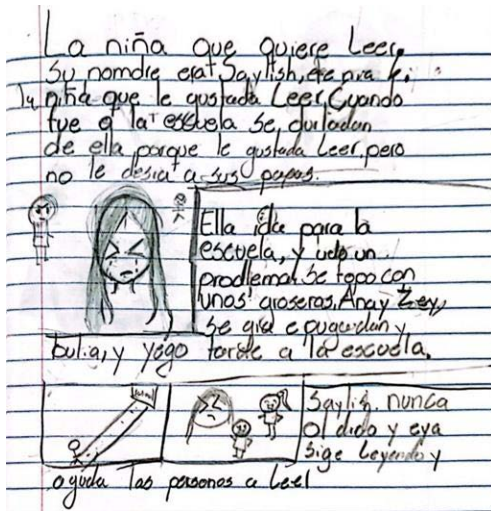 La niña que quiere Leer.
Su nomdre erat Saylish,
la niña que le gustada Leer, Cuando
fue a la escuela se, durladan
de ella porque le gustada Leer, pero
no le desia a sus papas.
Ella ida para la
escuela, y udo un
prodlema. Se topo con
unos groseros, Ana y Zey,
Se gia e pugadan y
bulia, y yego tarde a la escuela.
Saylish nunca
ol dido y eya
sige Leyendo y
ayuda las personas a Leel